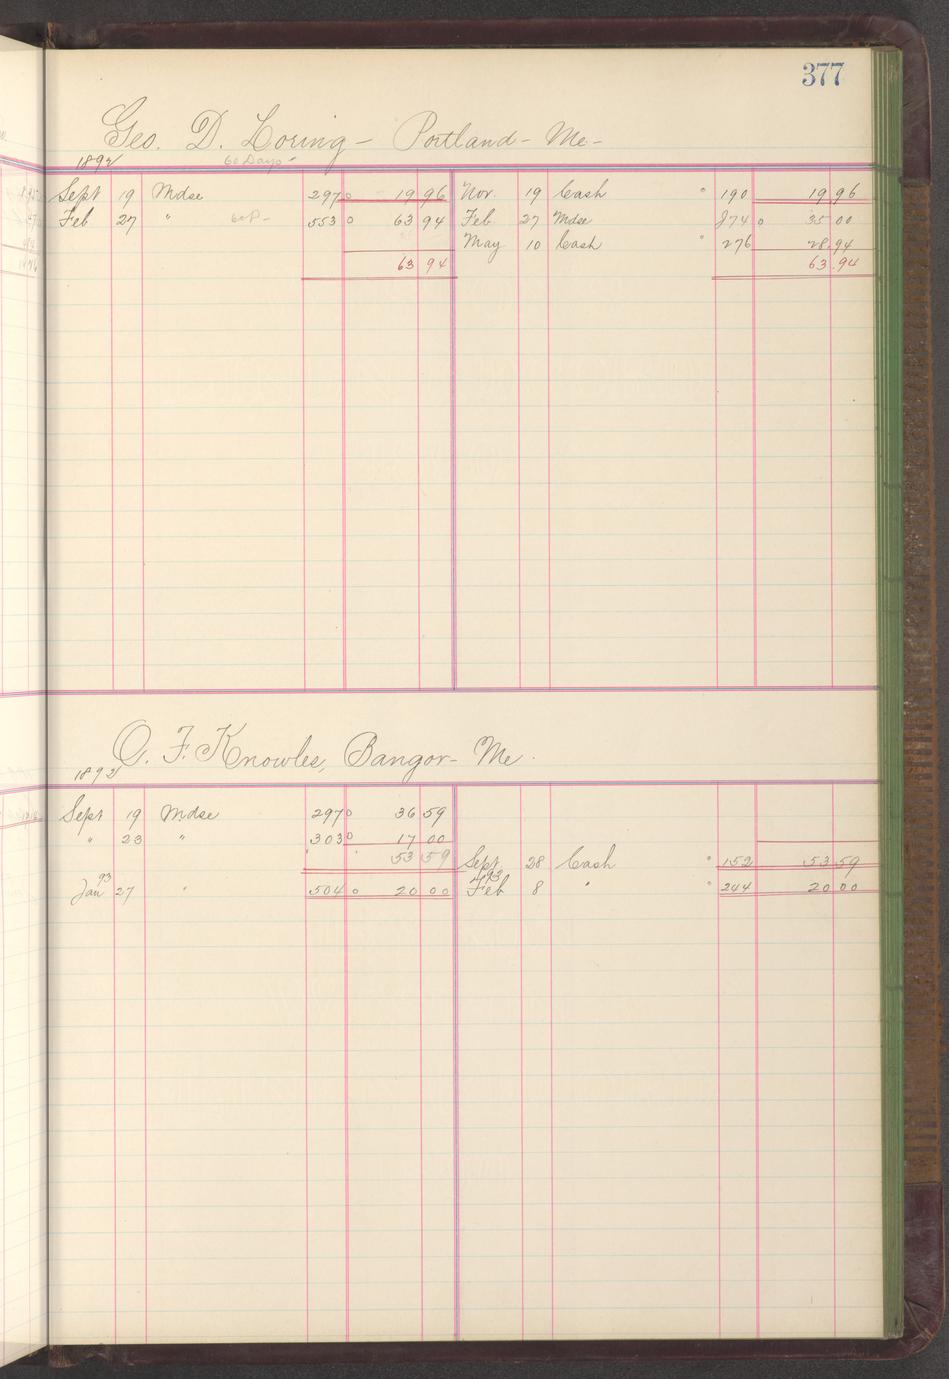 377
Geo. D. Loring - Portland - Me -
1892 60 Days -
Sept 19 Mdse 297 o 19 96 Nov. 19 Cash " 190 19 96
Feb 27 " 60 D- 553 o 63 94 Feb 27 Mdse 874 o 35 00
May 10 Cash " 276 28.94
63 94 63.94
O. F. Knowles, Bangor - Me.
1892
Sept 19 Mdse 297 o 36 59
" 23 " 303 o 17 00
53 59 Sept. 28 Cash " 152 53 59
93 93
Jan 27 " 504 o 20 00 Feb 8 " " 244 20 00